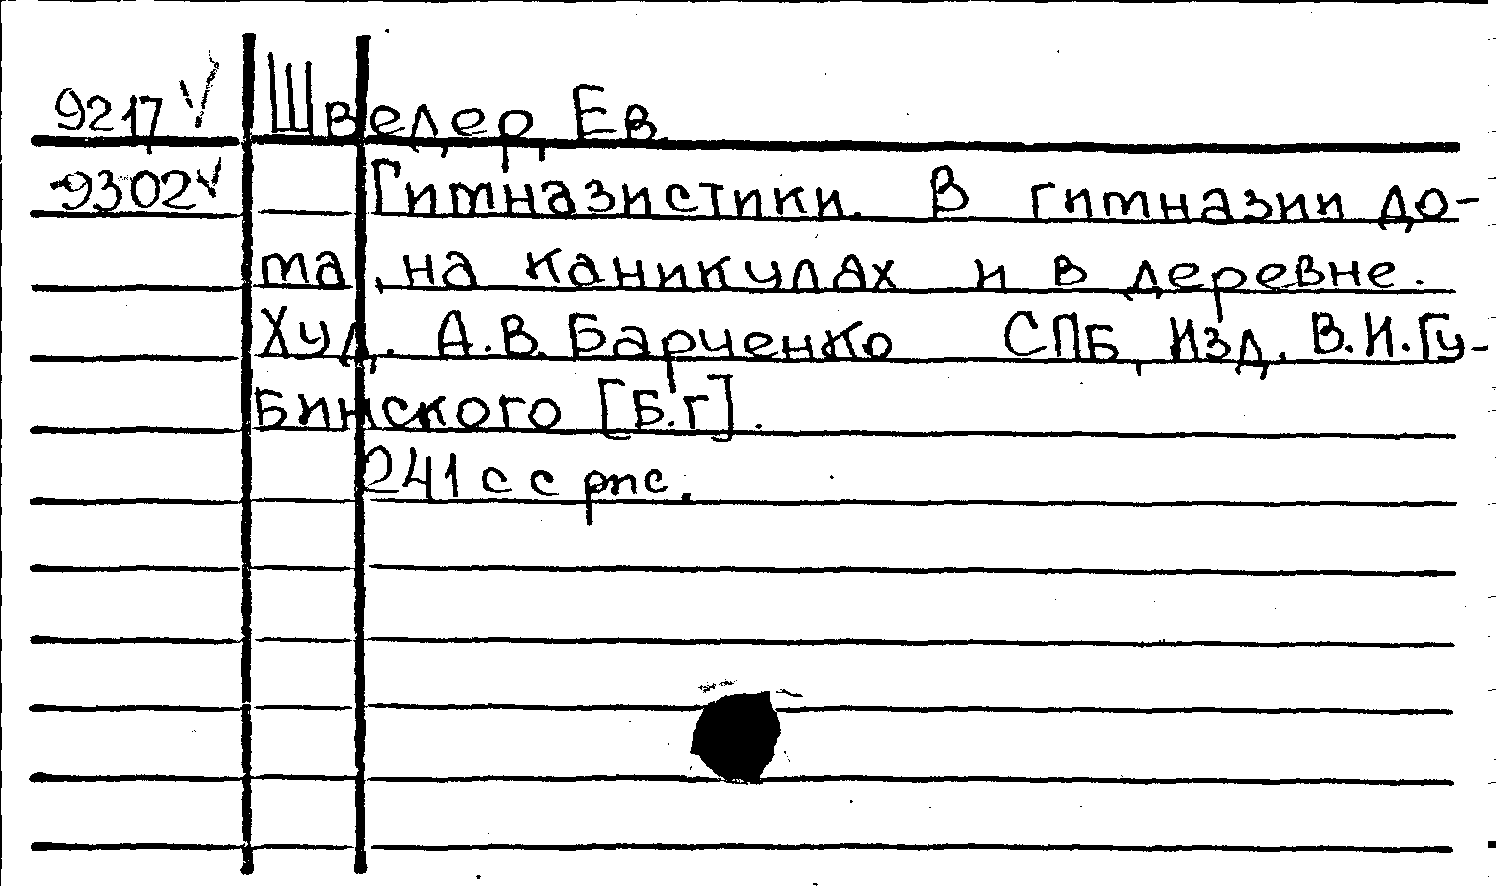 9217 Шведер, Ев
9302 Гимназистики. В гимназии до-
ма, на каникулах и в деревне.
Худ. А.В. Барченко СПБ, Изд. В.И.Гу-
Бинского [Б.г].
241 с с рис.